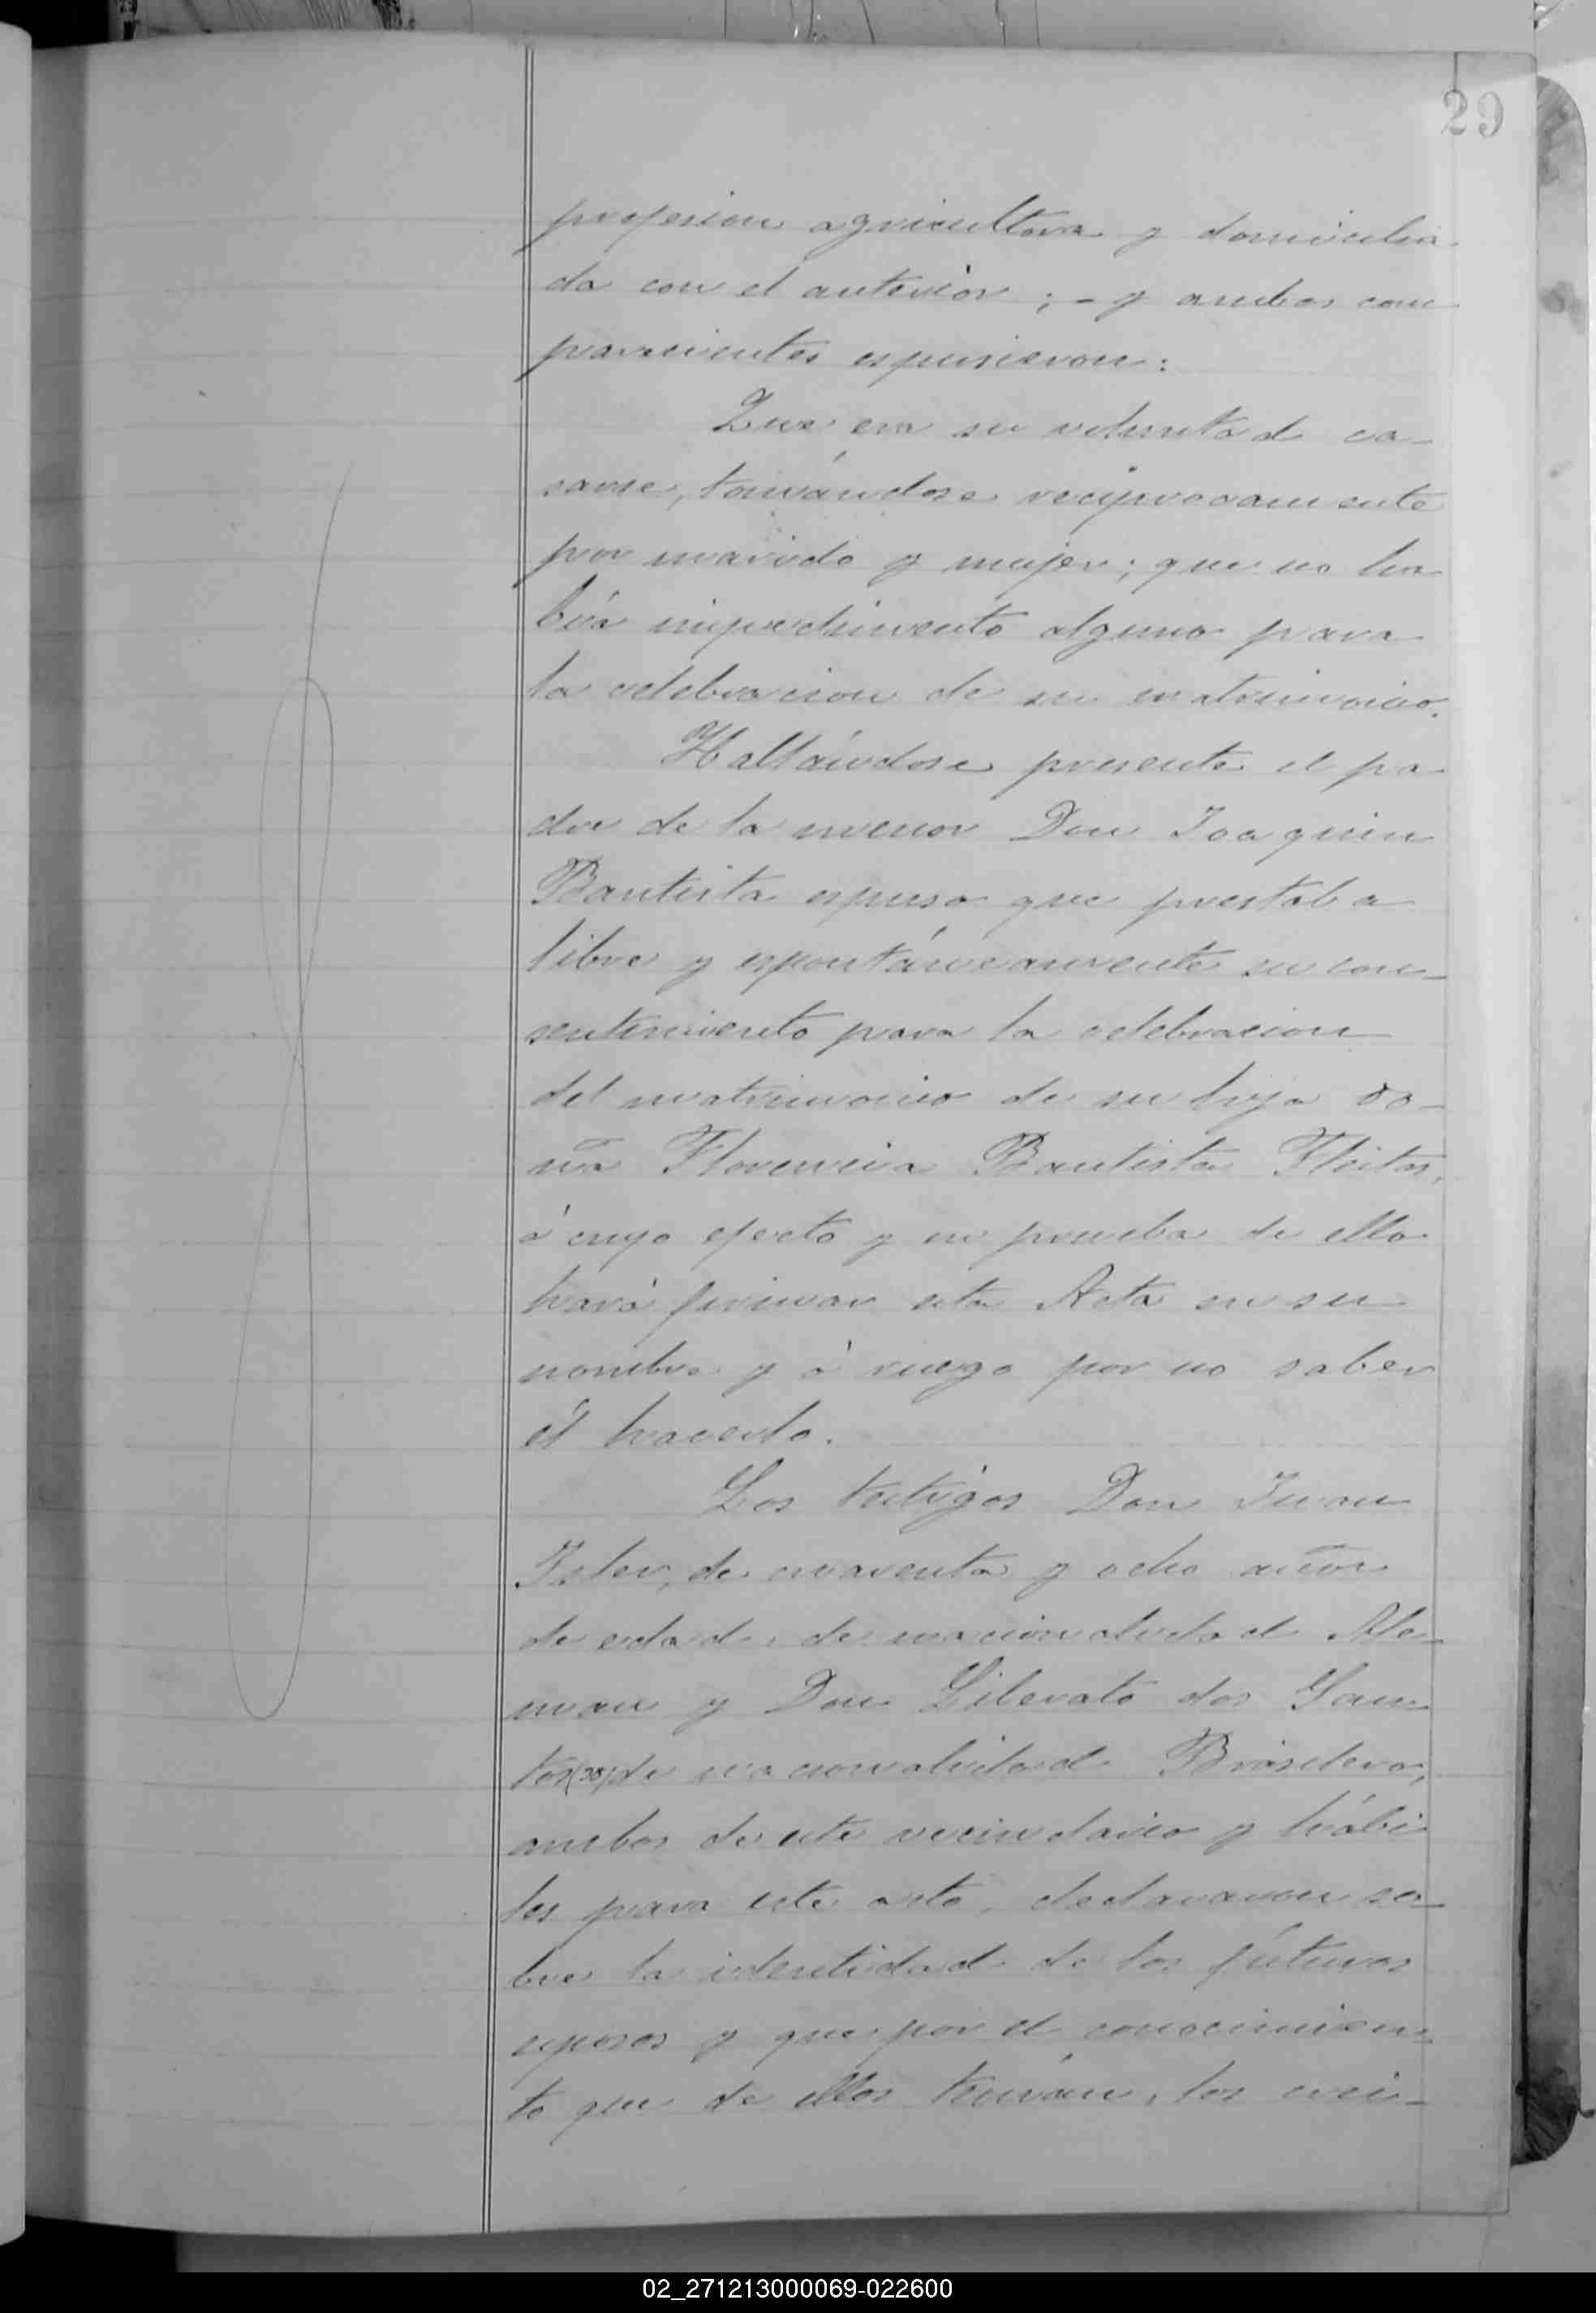 29
profesion agricultora y domicilia
da con el anterior ; – y ambos com
parecientes espusieron:
Que era su voluntad ca-
sarse, tomándose reciprocamente
por marido y mujer; que no ha
bía impedimento alguno para
la celebracion de su matrimonio.
Hallándose presente el pa
dre de la menor Don Joaquin
Bautista espuso que prestaba
libre y espontáneamente su con-
sentimiento para la celebracion
del matrimonio de su hija do-
ña Florencia Bautista Fleitas,
á cuyo efecto y en prueba de ello
hará firmar esta Acta en su
nombre y á ruego por no saber
él hacerlo.
Los testigos Don Juan
Isler, de cuarenta y ocho años
de edad, de nacionalidad Ale-
man y Don Liberato dos San
tos (38) de nacionalidad Brasilero,
ambos de este vecindario y hábi
les para este acto, declararon so-
bre la identidad de los fúturos
esposos y que por el conocimien-
to que de ellos tenían, los crei-
02_271213000069-022600